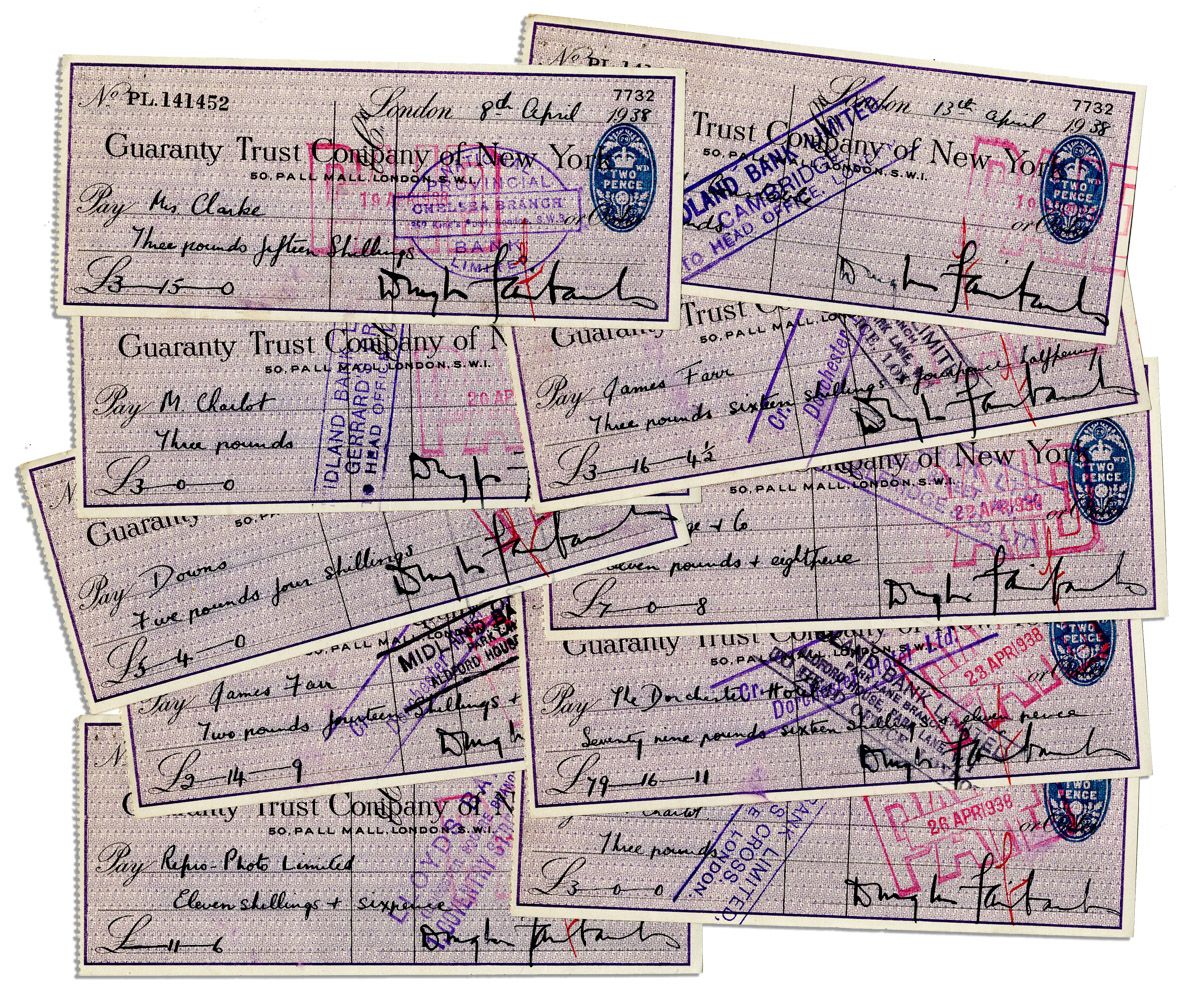 Nº PL.141452
7732
London 8th April 1938
Guaranty Trust Company of New York
50, PALL MALL, LONDON, S.W.1.
TWO PENCE
Pay Ms Clarke
or Order
Three pounds fifteen Shillings
£3—15—0
Douglas Fairbanks
PAID
19 APR
PROVINCIAL
CHELSEA BRANCH
BANK
LIMITED
Nº PL. 141
7732
London 13th April 1938
Trust Company of New York
50, PALL MALL, LONDON, S.W.1.
TWO PENCE
MIDLAND BANK LIMITED
CAMBRIDGE
TO HEAD OFFICE, L
or Order
Douglas Fairbanks
Guaranty Trust Company of N
50, PALL MALL, LONDON, S.W.1.
Pay M. Charlot
Three pounds
£3—0—0
MIDLAND BANK
GERRARD
HEAD OFFICE
20 AP
Guaranty Trust C
50, PALL MALL, LO
Pay James Farr
Three pounds sixteen shillings & fourpence halfpenny
£3—16—4½
Cr.
Dorchester
Douglas Fairbanks
Nº
Guaranty
Pay Downs
Five pounds four shillings
£5—4—0
Douglas Fairbanks
Company of New York
50, PALL MALL, LONDON, S.W.1.
TWO PENCE
22 APR 1938
& Co
seven pounds + eightpence
£7—0—8
Douglas Fairbanks
PALL MALL
MIDLAND
Pay James Farr
Two pounds fourteen shillings +
£2—14—9
Guaranty Trust Company of New York
50, PALL
TWO PENCE
23 APR 1938
Pay The Dorchester Hotel
or Order
Seventy nine pounds sixteen Shillings eleven pence
£79—16—11
Cr. Dorchester Hotel Ltd.
BANK
PARK LANE BRANCH
Douglas Fairbanks
Nº
Guaranty Trust Company of N
50, PALL MALL, LONDON, S.W.1.
Pay Repro-Photo Limited
Eleven shillings + sixpence
£—11—6
LLOYDS BA
COVENTRY STR
Douglas Fairbanks
TWO PENCE
PAID
26 APR 1938
Charlot
or Order
Three pounds
£3—0—0
BANK LIMITED,
S CROSS,
LONDON.
Douglas Fairbanks